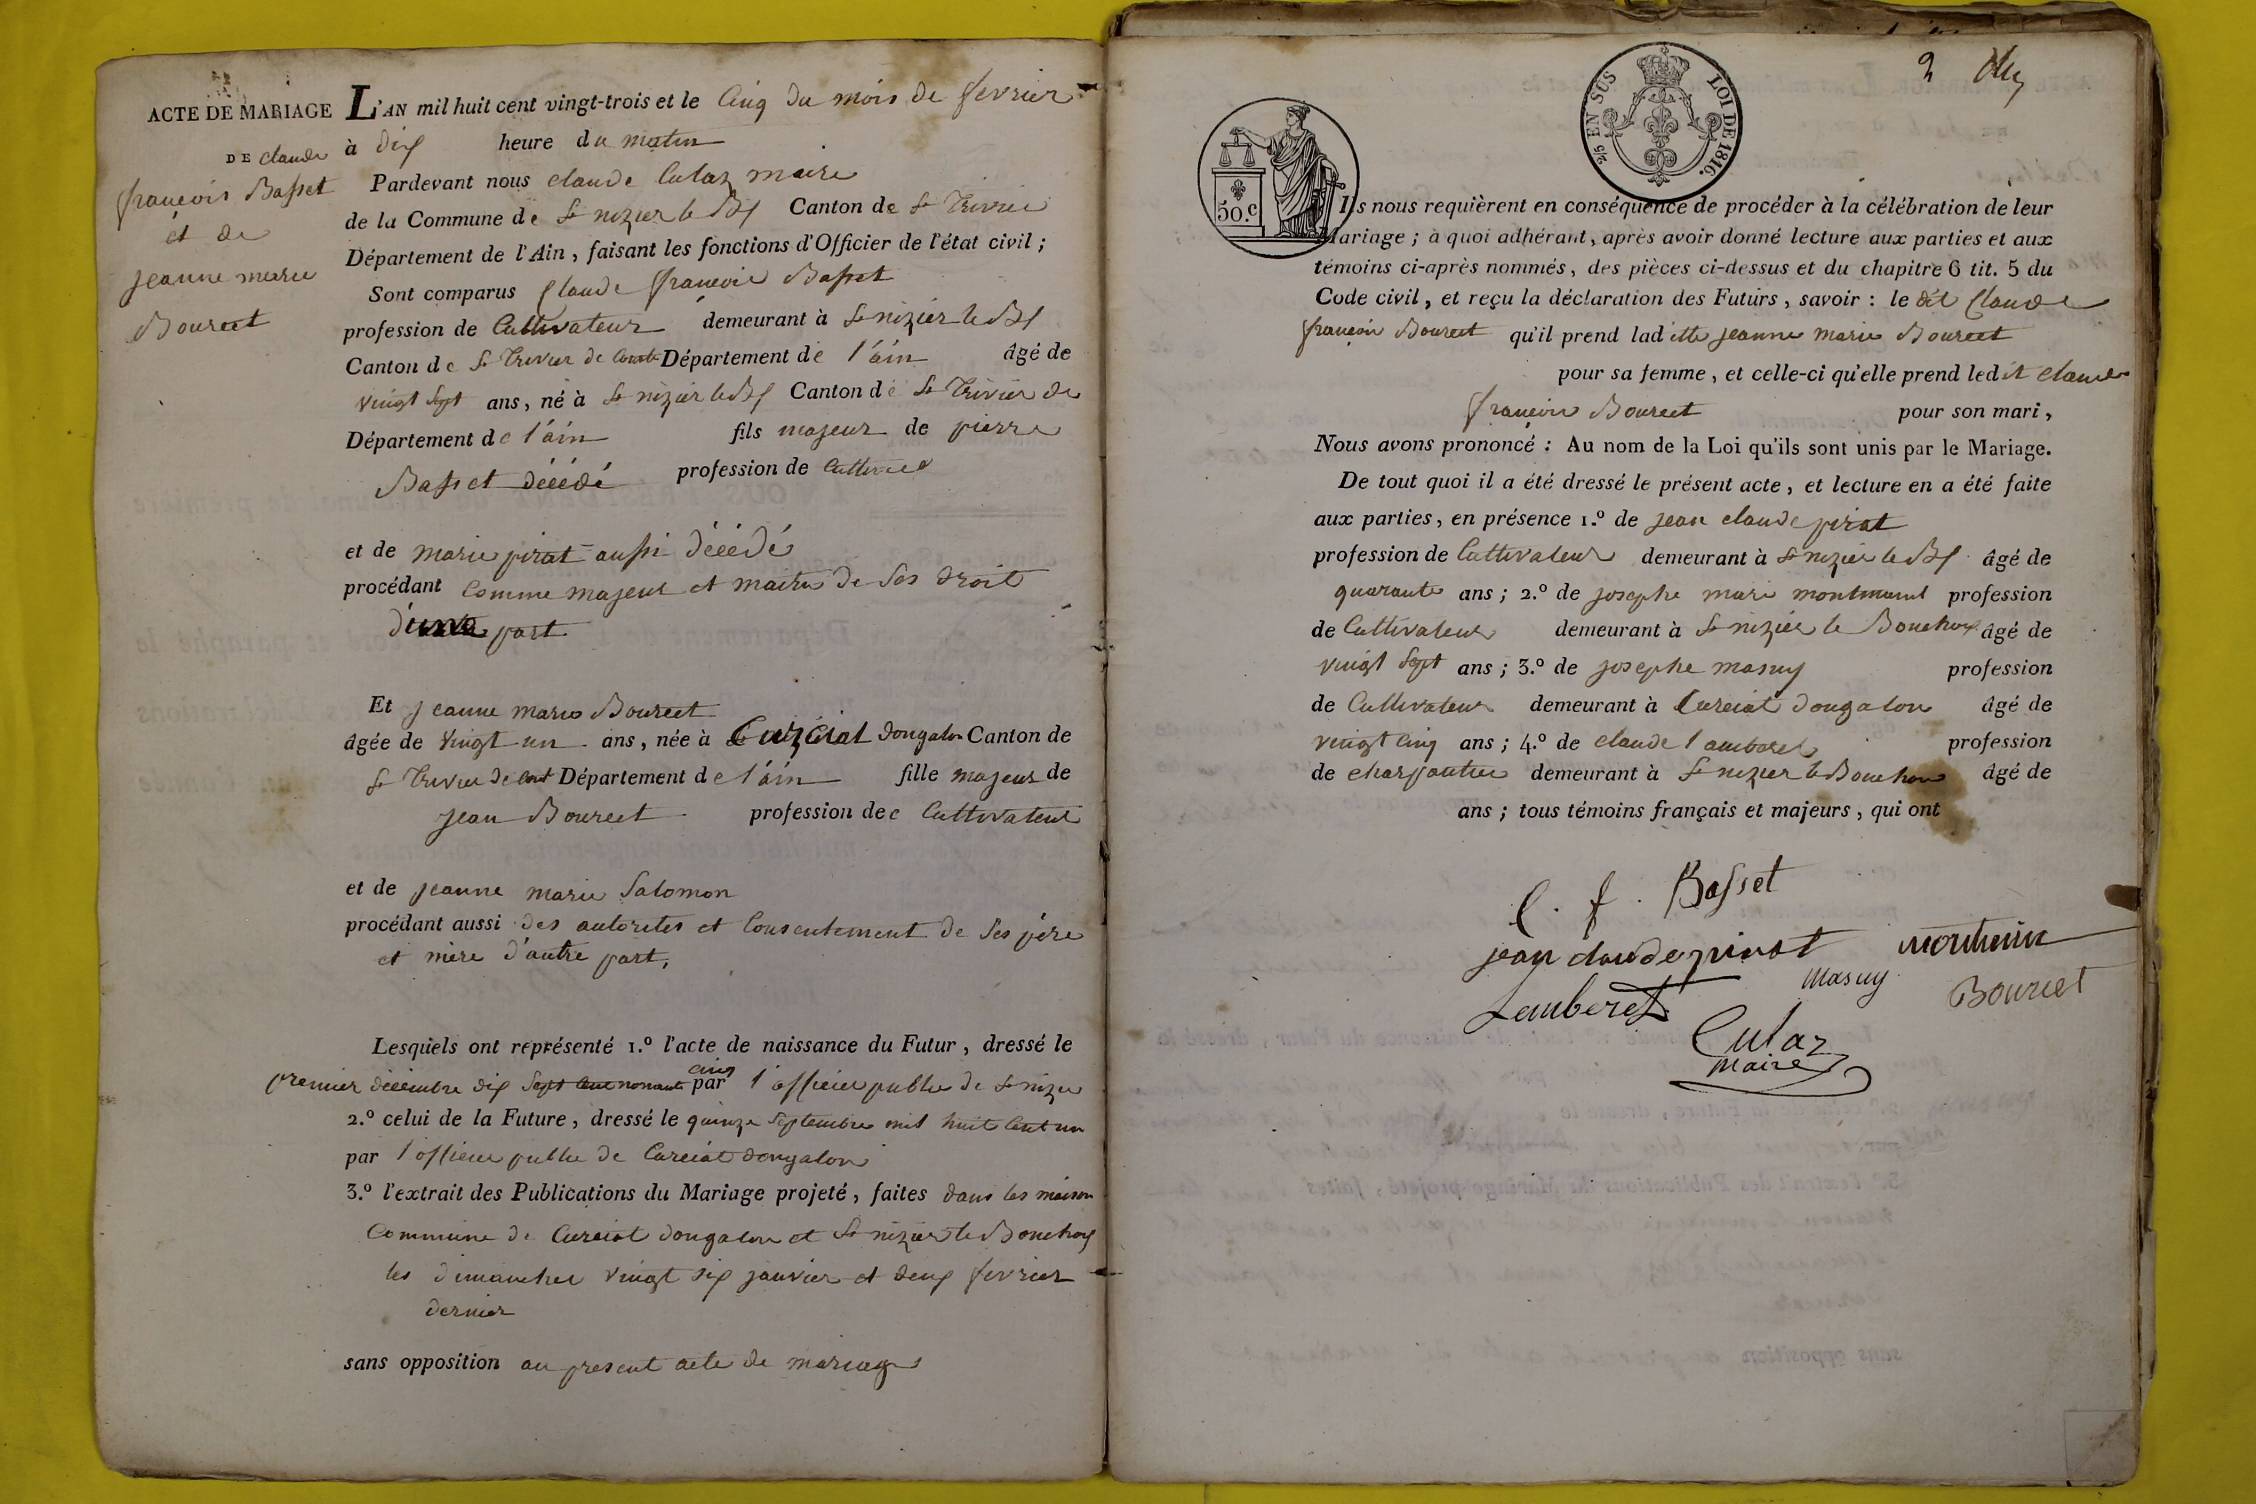 ACTE DE MARIAGE
DE claude
françois Basset
et de
jeanne marie
Bourcet
L'AN mil huit cent vingt-trois et le Cinq du mois de fevrier
à dix heure du matin
Pardevant nous claude Culaz maire
de la Commune de St nizier le Bx Canton de St Trivier
Département de l'Ain, faisant les fonctions d'Officier de l'état civil ;
Sont comparus Claude françois Basset
profession de Cultivateur demeurant à St nizier le Bx
Canton de St Trivier de Court Département de l'ain âgé de
vingt Sept ans, né à St nizier le Bx Canton de St Trivier de
Département de l'ain fils majeur de pierre
Basset décédé profession de
et de marie pirat aussi décédé
procédant Comme majeur et maitre de Ses droit
d'une part
Et jeanne marie Bourcet
âgée de vingt un ans, née à Curciat dongalon Canton de
St Trivier de Court Département de l'ain fille majeur de
jean Bourcet profession de Cultivateur
et de jeanne marie Salomon
procédant aussi des autorites et Consentement de Ses père
et mère d'autre part,
Lesquels ont représenté 1.º l'acte de naissance du Futur, dressé le
cinq
premier décembre dix Sept Cent nonante par l'officier public de St nizier
2.º celui de la Future, dressé le quinze Septembre mil huit Cent un
par l'officier public de Curciat dongalon
3.º l'extrait des Publications du Mariage projeté, faites dans les maison
Commune de Curciat dongalon et St nizier le Bouchoux
les dimanches vingt six janvier et deux fevrier
dernier
sans opposition au present acte de mariage
2
50.c
2/5 EN SUS LOI DE 1816.
Ils nous requièrent en conséquence de procéder à la célébration de leur
Mariage ; à quoi adhérant, après avoir donné lecture aux parties et aux
témoins ci-après nommés, des pièces ci-dessus et du chapitre 6 tit. 5 du
Code civil, et reçu la déclaration des Futurs, savoir : le dit Claude
françois Bourcet qu'il prend ladite jeanne marie Bourcet
pour sa femme, et celle-ci qu'elle prend ledit claude
françois Bourcet pour son mari,
Nous avons prononcé : Au nom de la Loi qu'ils sont unis par le Mariage.
De tout quoi il a été dressé le présent acte, et lecture en a été faite
aux parties, en présence 1.º de jean claude pirat
profession de Cultivateur demeurant à St nizier le Bx âgé de
quarante ans ; 2.º de josephe marie profession
de Cultivateur demeurant à St nizier le Bouchoux âgé de
vingt Sept ans ; 3.º de josephe masuy profession
de Cultivateur demeurant à Curciat dongalon âgé de
vingt Cinq ans ; 4.º de claude lamberet profession
de charpentier demeurant à St nizier le Bouchoux âgé de
ans ; tous témoins français et majeurs, qui ont
C. f. Basset
jean claude pirat
masuy Bourcet
Lamberet
Culaz
maire